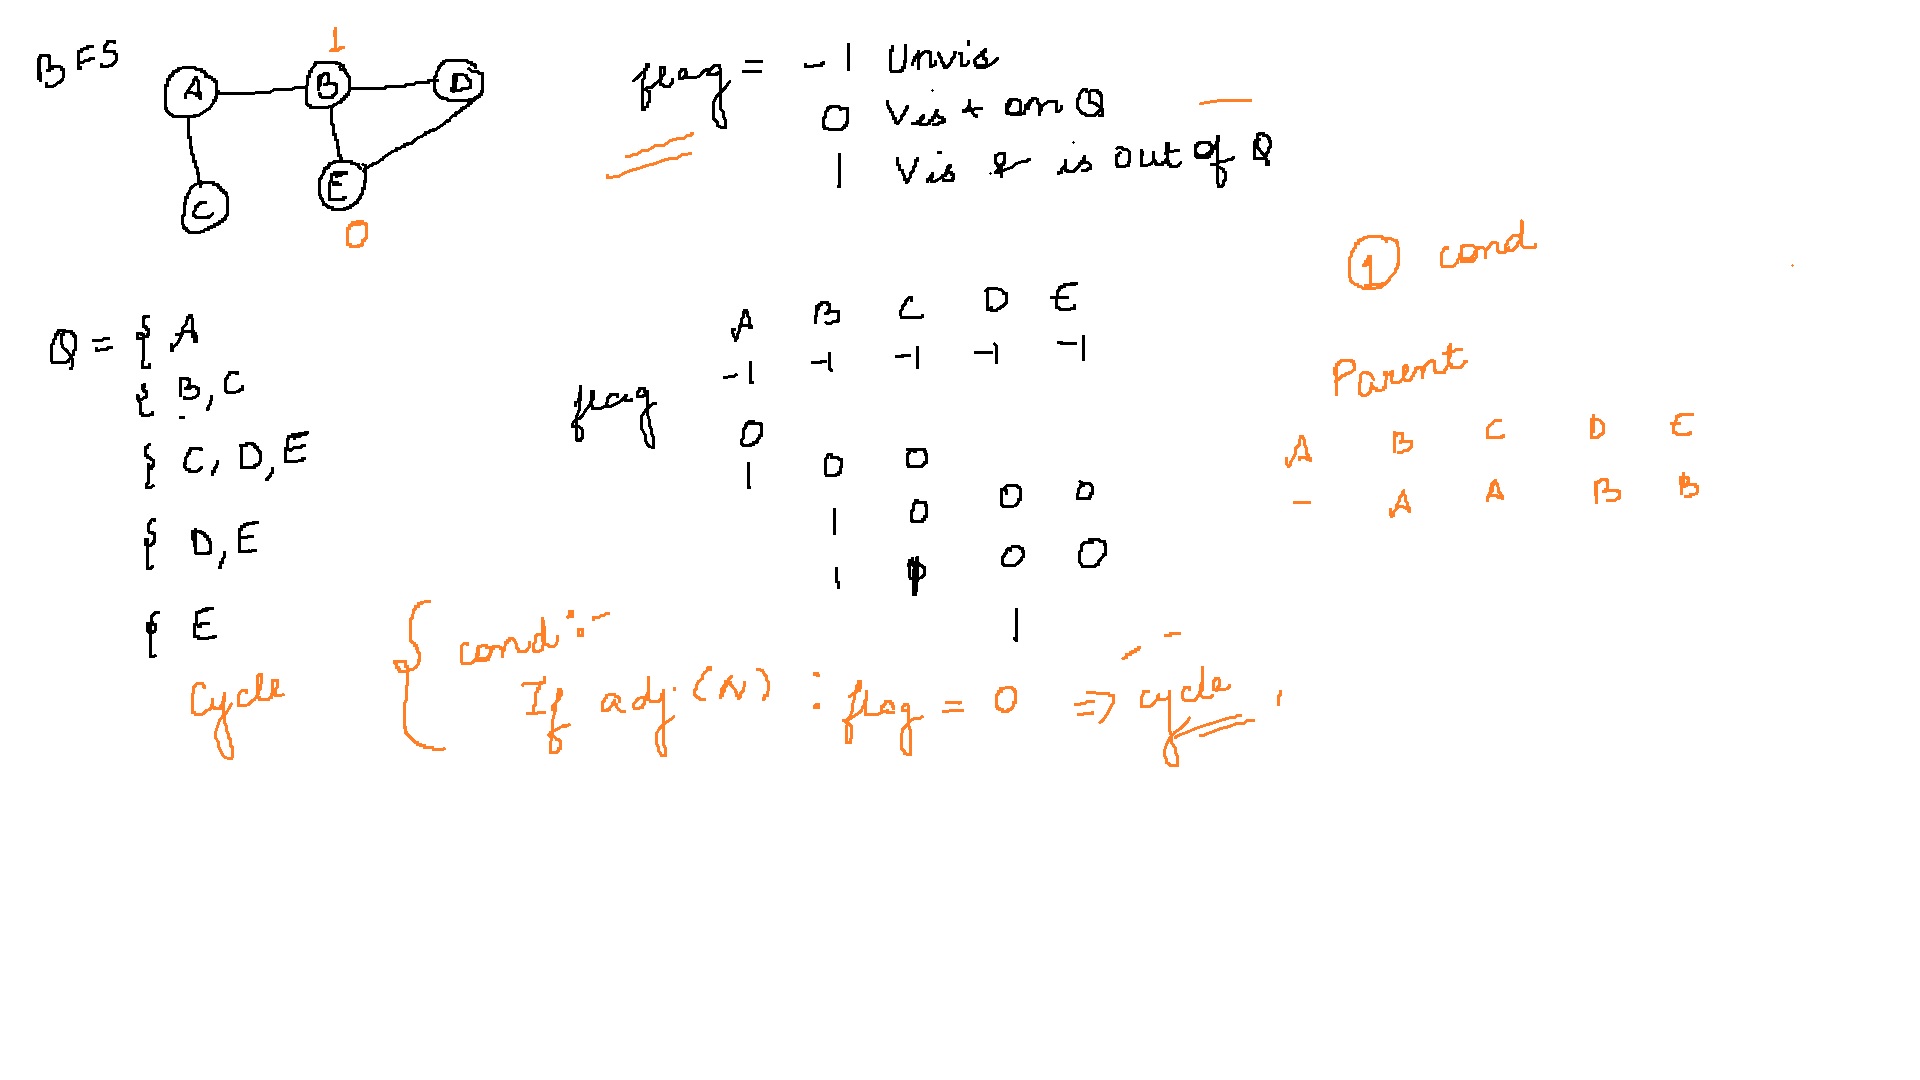 BFS
1
A B D
C E
0
flag = -1 Unvis
0 Vis + on Q
1 Vis & is out of Q
1 cond
Q = { A
{ B, C
{ C, D, E
{ D, E
{ E
A B C D E
flag -1 -1 -1 -1 -1
0
1 0 0
1 0 0 0
1 0 0
1
Parent
A B C D E
- A A B B
Cycle { cond :-
If adj. (N) : flag = 0 => cycle